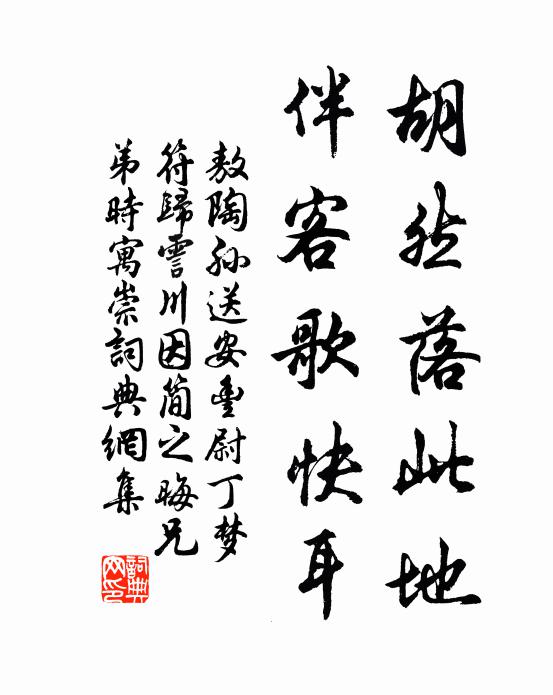 胡然落此地
伴客歌快耳
敖陶孫送安豊尉丁梦
符歸霅川因簡之晦兄
弟時寓崇詞典網集
詞典网印